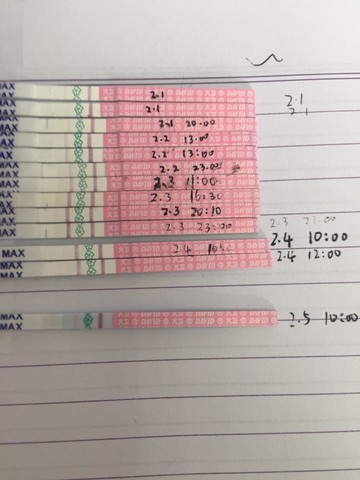 MAX
2.1
2.1
MAX
2.1
2.1
MAX
2.1 20:00
MAX
2.2 13:00
MAX
2.2 13:00
MAX
2.2 23:00
MAX
2.3 11:00
MAX
2.3 16:30
MAX
2.3 20:10
MAX
2.3 23:00
2.3 23:00
MAX
2.4
2.4 10:00
MAX
2.4 12:00
MAX
MAX
2.5 10:00